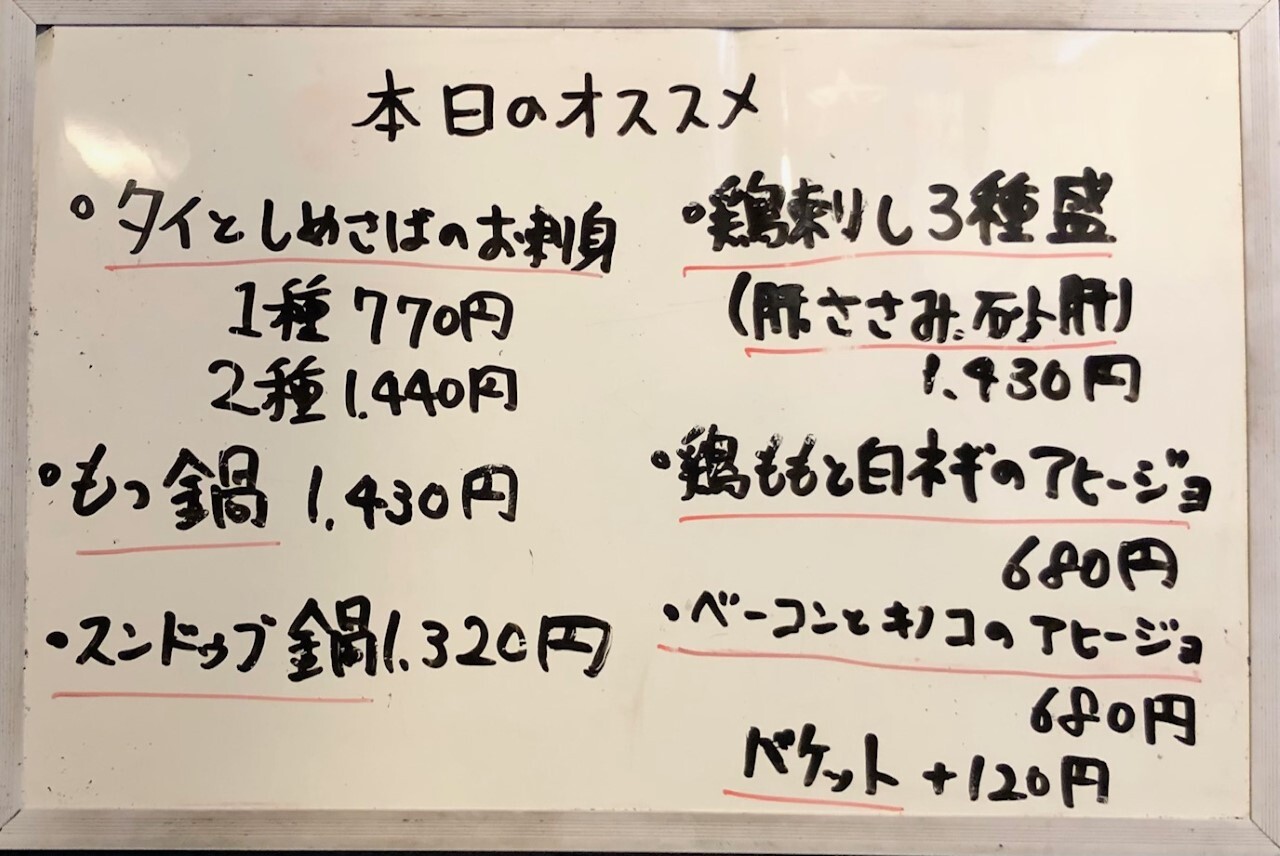 本日のオススメ
・タイとしめさばのお刺身
1種 770円
2種 1.440円
・もつ鍋 1.430円
・スンドゥブ鍋 1.320円
・鶏刺し3種盛
(肝、ささみ、砂肝)
1.430円
・鶏ももと白ネギのアヒージョ
680円
・ベーコンとキノコのアヒージョ
680円
バケット +120円